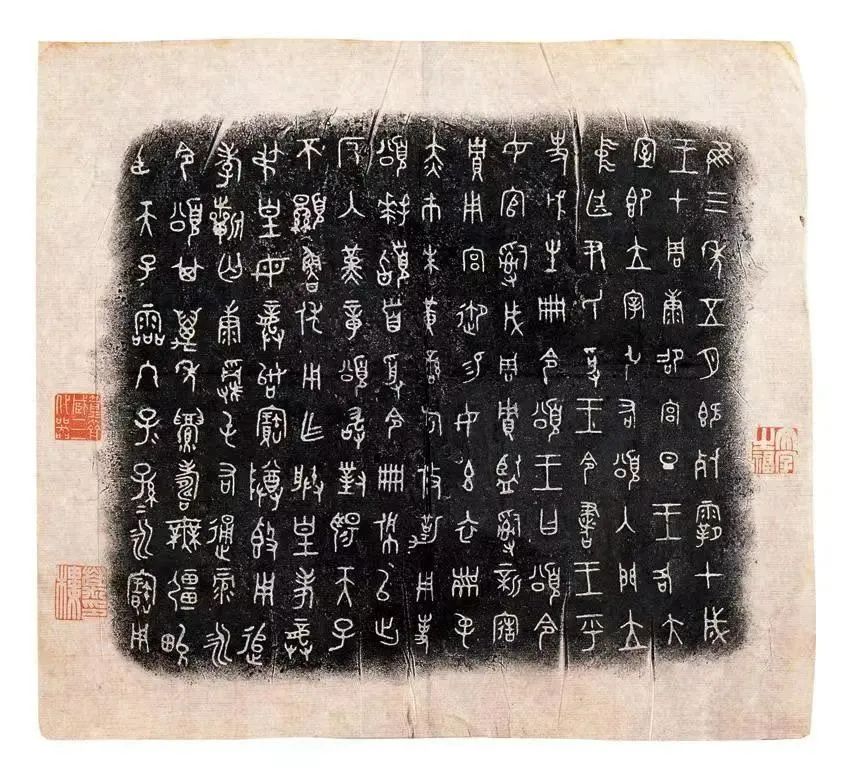 隹三年五月既死霸甲戌
王才周康卲宮旦王各大
室即立宰引右頌入門立
中廷尹氏受王令書王乎
史虢生冊令頌王曰頌令
女官𤔲成周貯監𤔲新造
貯用宮御易女玄衣黹屯
赤巿朱黃䜌旂攸勒用事
頌拜𩒨首受令冊佩以出
反入堇章頌敢對揚天子
不顯魯休用乍朕皇考龏
弔皇母龏始寶尊簋用追
孝祈匄康䨣屯右通彔永
令頌其萬年眉壽無疆畯
臣天子霝冬子孫永寶用